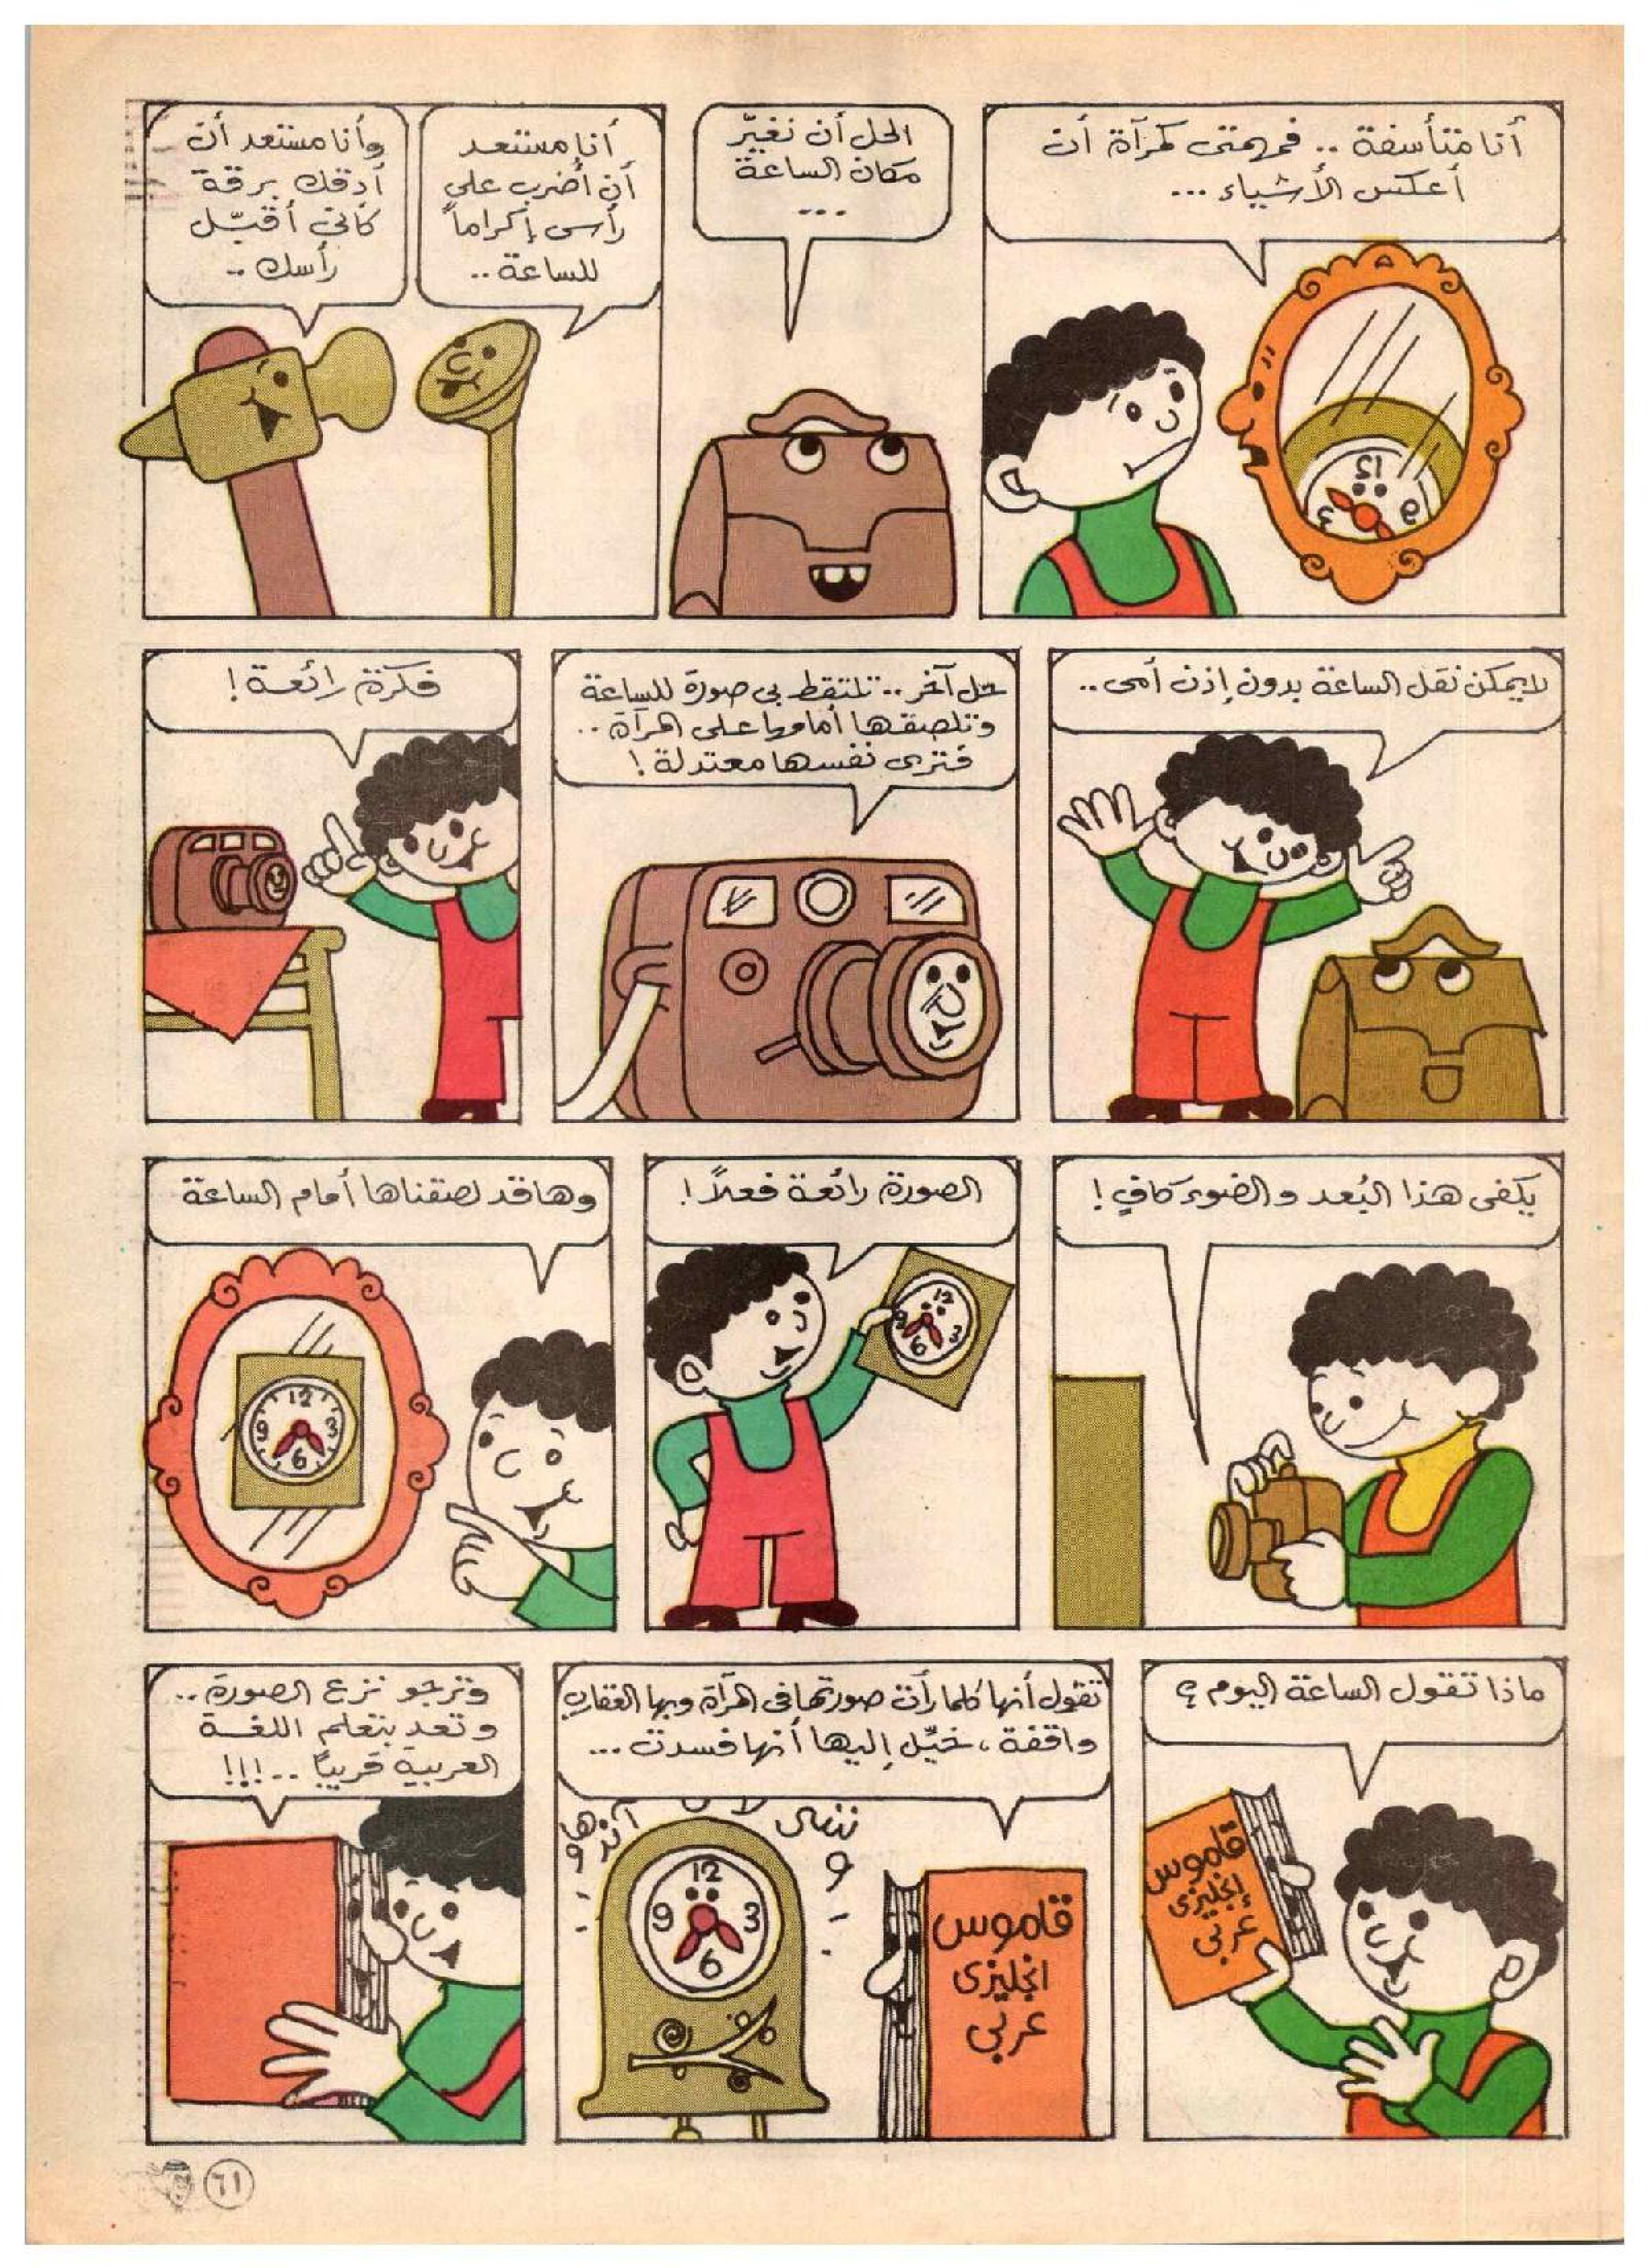 أنا متأسفة .. فمهمتى كمرآة أن
أعكس الأشياء ...
12
3
9
الحل أن نغيّر
مكان الساعة
...
أنا مستعد
أن أضرب على
رأسى إكراماً
للساعة ..
وأنا مستعد أن
أدقك برقة
كأنى أقبّل
رأسك ..
لا يمكن نقل الساعة بدون إذن أمى ..
حل آخر .. تلتقط بى صورة للساعة
وتلصقها أمامها على المرآة ..
فترى نفسها معتدلة !
فكرة رائعة !
يكفى هذا البُعد والضوء كافٍ !
الصورة رائعة فعلاً !
12
9
3
6
وها قد لصقناها أمام الساعة
12
9
3
6
ماذا تقول الساعة اليوم ؟
قاموس
إنجليزى
عربى
تقول أنها كلما رأت صورتها فى المرآة وبها العقارب
واقفة ، خيّل إليها أنها فسدت ...
12
9
3
6
قاموس
انجليزى
عربى
وترجو نزع الصورة ..
وتعد بتعلم اللغة
العربية قريباً .. !!!
٦١